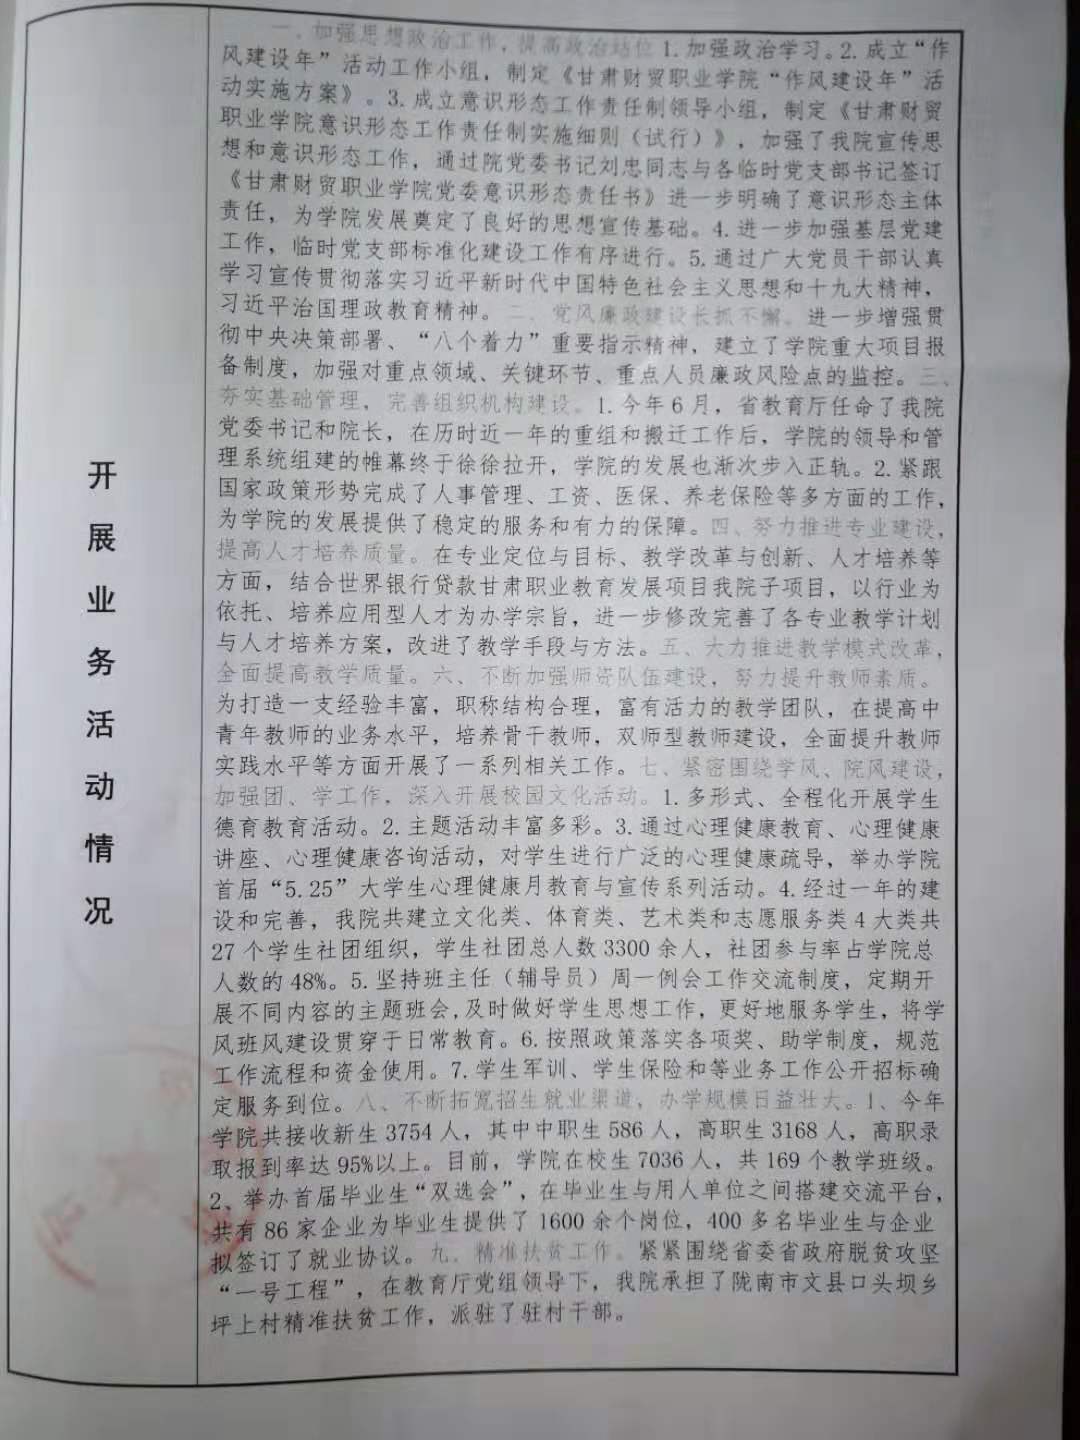 开展业务活动情况
一、加强思想政治工作，提高政治站位1.加强政治学习。2.成立“作
风建设年”活动工作小组，制定《甘肃财贸职业学院“作风建设年”活
动实施方案》。3.成立意识形态工作责任制领导小组，制定《甘肃财贸
职业学院意识形态工作责任制实施细则（试行）》，加强了我院宣传思
想和意识形态工作，通过院党委书记刘忠同志与各临时党支部书记签订
《甘肃财贸职业学院党委意识形态责任书》进一步明确了意识形态主体
责任，为学院发展奠定了良好的思想宣传基础。4.进一步加强基层党建
工作，临时党支部标准化建设工作有序进行。5.通过广大党员干部认真
学习宣传贯彻落实习近平新时代中国特色社会主义思想和十九大精神，
习近平治国理政教育精神。二、党风廉政建设长抓不懈。进一步增强贯
彻中央决策部署、“八个着力”重要指示精神，建立了学院重大项目报
备制度，加强对重点领域、关键环节、重点人员廉政风险点的监控。三、
夯实基础管理，完善组织机构建设。1.今年6月，省教育厅任命了我院
党委书记和院长，在历时近一年的重组和搬迁工作后，学院的领导和管
理系统组建的帷幕终于徐徐拉开，学院的发展也渐次步入正轨。2.紧跟
国家政策形势完成了人事管理、工资、医保、养老保险等多方面的工作，
为学院的发展提供了稳定的服务和有力的保障。四、努力推进专业建设，
提高人才培养质量。在专业定位与目标、教学改革与创新、人才培养等
方面，结合世界银行贷款甘肃职业教育发展项目我院子项目，以行业为
依托、培养应用型人才为办学宗旨，进一步修改完善了各专业教学计划
与人才培养方案，改进了教学手段与方法。五、大力推进教学模式改革，
全面提高教学质量。六、不断加强师资队伍建设，努力提升教师素质。
为打造一支经验丰富，职称结构合理，富有活力的教学团队，在提高中
青年教师的业务水平，培养骨干教师，双师型教师建设，全面提升教师
实践水平等方面开展了一系列相关工作。七、紧密围绕学风、院风建设，
加强团、学工作，深入开展校园文化活动。1.多形式、全程化开展学生
德育教育活动。2.主题活动丰富多彩。3.通过心理健康教育、心理健康
讲座、心理健康咨询活动，对学生进行广泛的心理健康疏导，举办学院
首届“5.25”大学生心理健康月教育与宣传系列活动。4.经过一年的建
设和完善，我院共建立文化类、体育类、艺术类和志愿服务类4大类共
27个学生社团组织，学生社团总人数3300余人，社团参与率占学院总
人数的48%。5.坚持班主任（辅导员）周一例会工作交流制度，定期开
展不同内容的主题班会,及时做好学生思想工作，更好地服务学生，将学
风班风建设贯穿于日常教育。6.按照政策落实各项奖、助学制度，规范
工作流程和资金使用。7.学生军训、学生保险和等业务工作公开招标确
定服务到位。八、不断拓宽招生就业渠道，办学规模日益壮大。1、今年
学院共接收新生3754人，其中中职生586人，高职生3168人，高职录
取报到率达95%以上。目前，学院在校生7036人，共169个教学班级。
2、举办首届毕业生“双选会”，在毕业生与用人单位之间搭建交流平台，
共有86家企业为毕业生提供了1600余个岗位，400多名毕业生与企业
拟签订了就业协议。九、精准扶贫工作。紧紧围绕省委省政府脱贫攻坚
“一号工程”，在教育厅党组领导下，我院承担了陇南市文县口头坝乡
坪上村精准扶贫工作，派驻了驻村干部。